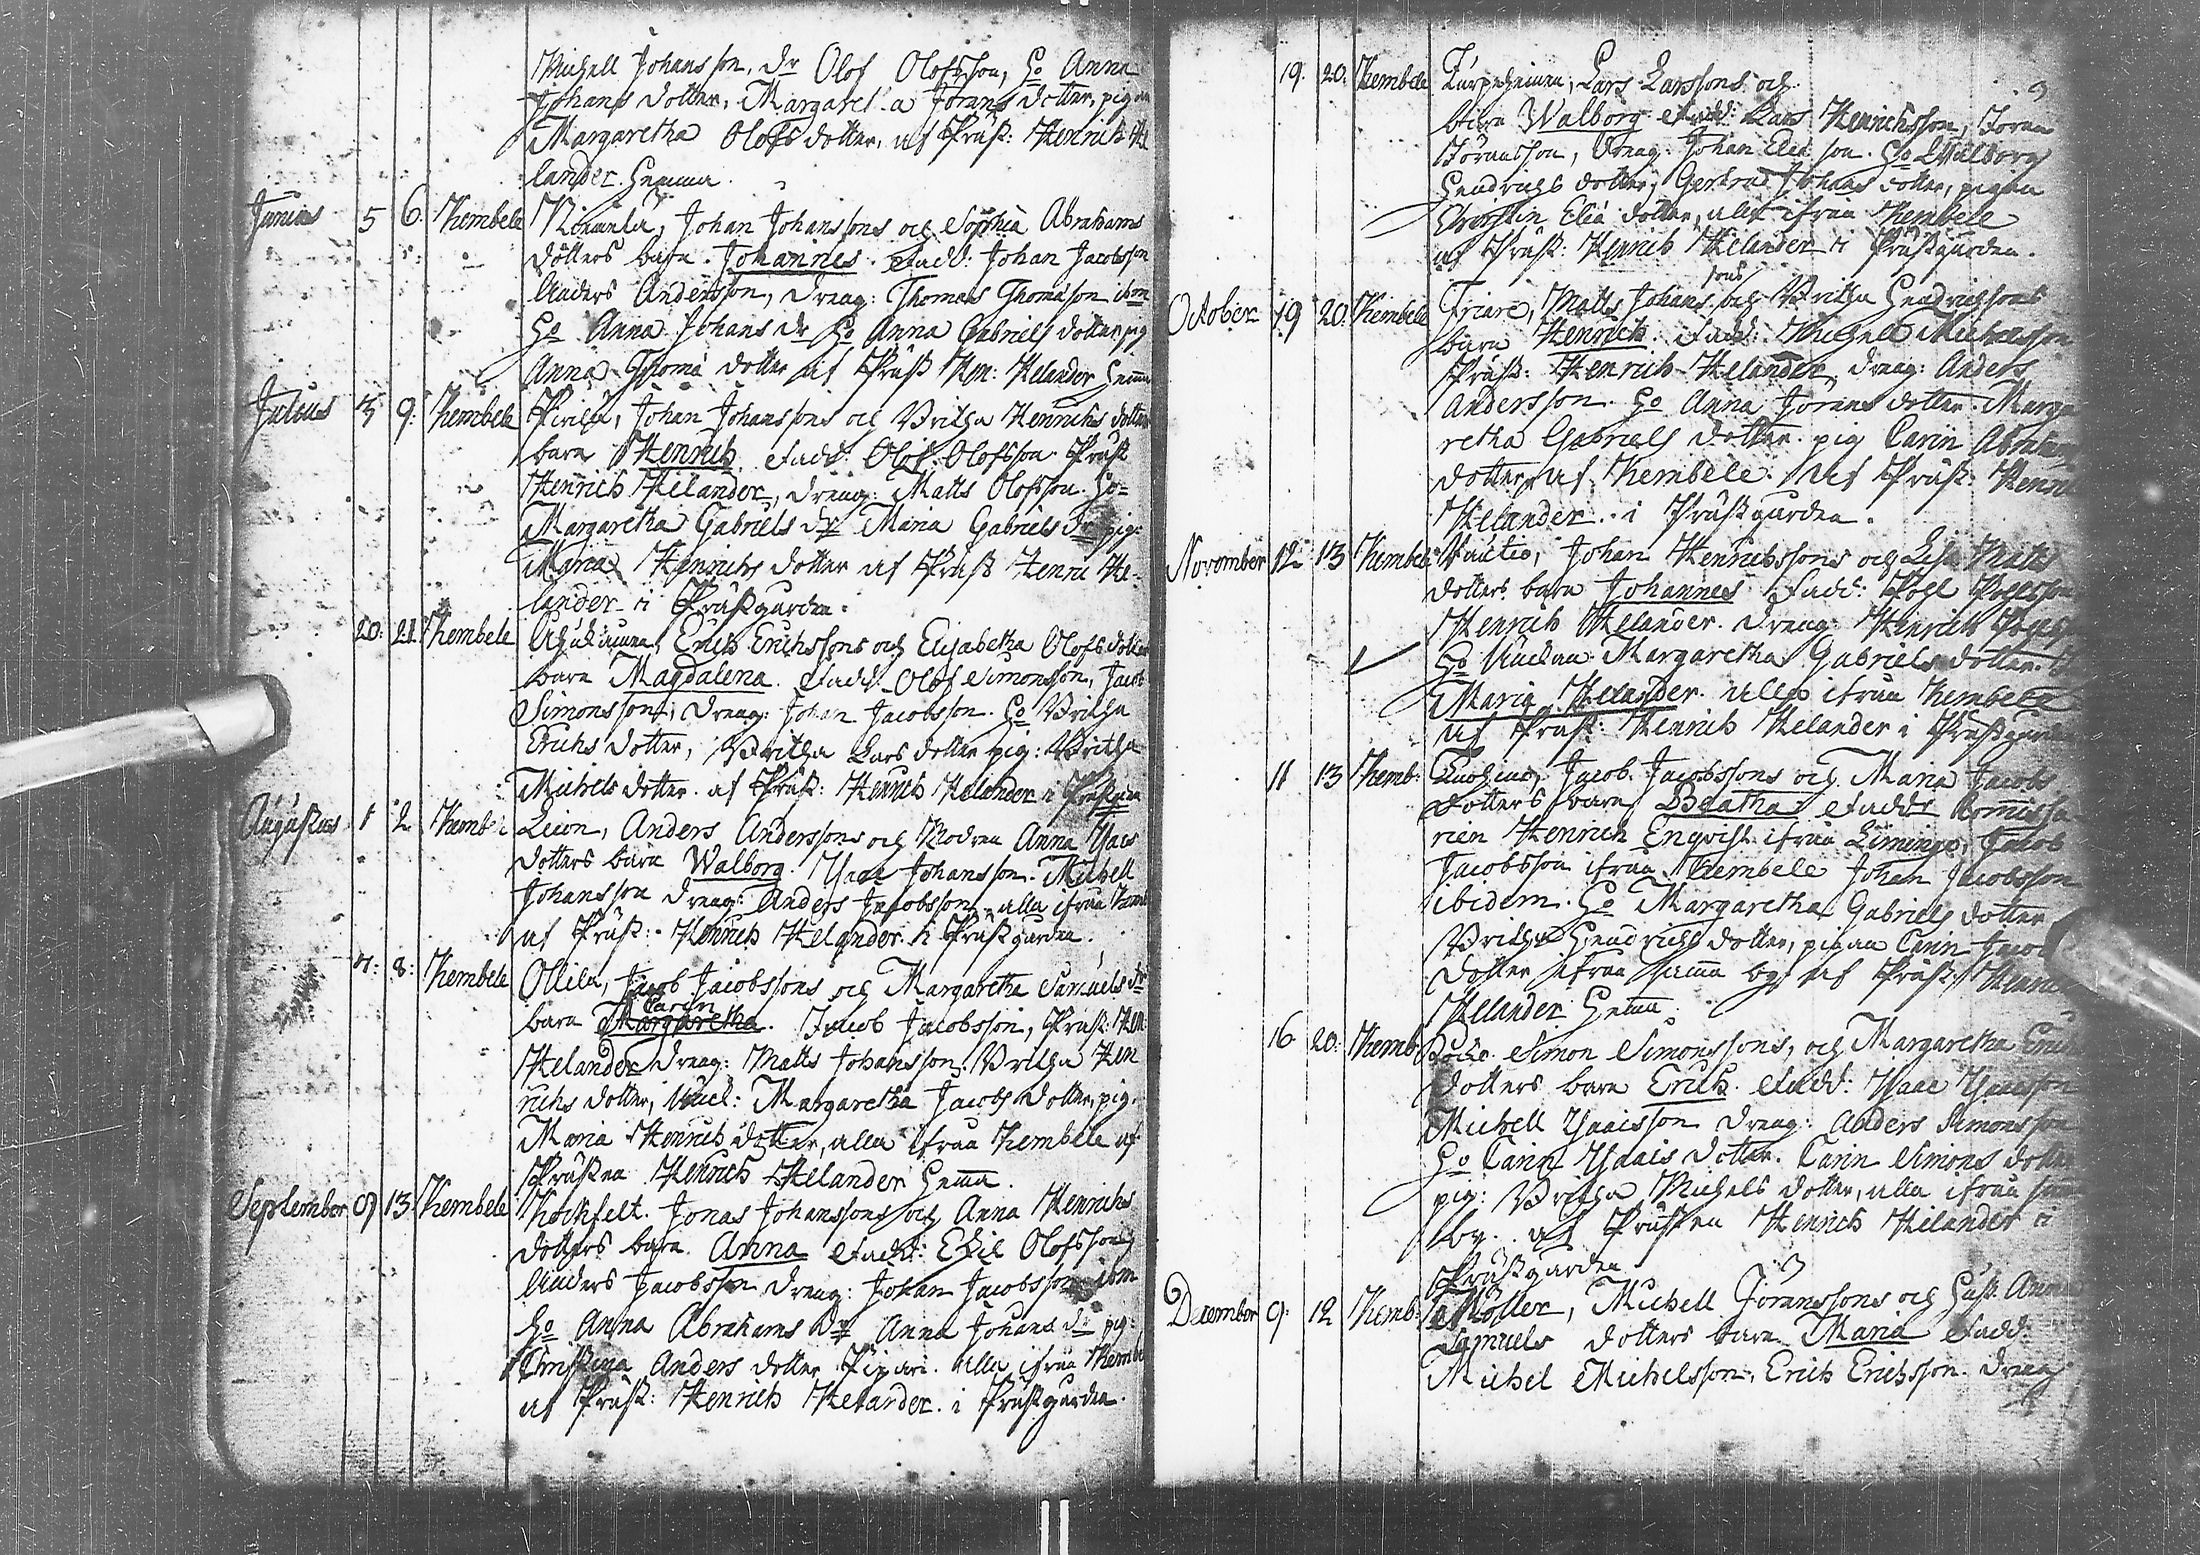 Michell Johansson, dr Olof Olofsson, Ho Anna
Johans dotter, Margareta Jörans dotter, pigan
Margaretha Olofs dotter, af Präst: Henrich He
lander hemma.
Junius 5 6. Kembele Johan Johanssons och Sophia Abrahams
dotters barn Johannes. Fadd: Johan Jacobsson
Anders Andersson, dreng: Thomas Thomasson ibm
Ho Anna Johans dr Ho Anna Gabriels dotter, pig
Anna Thoma dotter af Präst Hen: Helander hemma
Julius 3 9. Kembele Pirilä, Johan Johanssons och Britha Henrichs dotters
barn Henrich. Fadd: Olof Olofsson Präst
Henrich Helander, dreng: Matts Olofsson. Ho=
Margaretha Gabriels dr Maria Gabriels dr pig:
Maria Henrichs dotter af Präst Henri He=
lander i Prästgården.
20. 21. Kembele Erich Erichssons och Elisabetha Olofs dotters
barn Magdalena. Fadd: Olof Simonsson, Jacob
Simonsson, dreng: Johan Jacobsson. Ho Britha
Erichs dotter, Britha Lars dotter pig: Britha
Michels dotter. af Präst: Henrich Helander i
Augustus 1 2 Kemb: Anders Anderssons och Modren Anna Isacs
dotters barn Walborg. Isac Johansson. Michell
Johansson dreng: Anders Jacobsson, alla ifrån
af Präst: Henrich Helander i Prästgården.
7: 8: Kembele Ollila, Jacob Jacobssons och Margaretha Samuels dr
Carin
barn Margaretha. Jacob Jacobsson, Präst: Hen:
Helander dreng: Matts Johansson. Britha Hen
richs dotter, Margaretha Jacobs dotter, pig.
Maria Henrichs dotter, alla ifrån Kembele af
Prästen Henrich Helander hemma.
September 9 13 Kembele Kockfelt. Jonas Johanssons och Anna Henrichs
dotters barn Anna Fadd: Eskil Olofsson
Anders Jacobsson dreng: Johan Jacobsson ibm
Ho Anna Abrahams dr Anna Johans dr pig:
Christina Anders dotter alla ifrån Kembe
af Präst: Henrich Helander. i Prästgården.
19. 20. Kembele Lars Larssons och
barn Walborg Fadd: Lars Henrichsson, Joran
Joransson, dreng: Johan Elia son. Ho Walborg
Hendrichs dotter, Gertrud Johans dotter, pigan
Christin Elia dotter, alla ifrån Kembele
af Präst: Henrich Helander i Prästgården.
sons
October 19 20 Kembele Friare, Matts Johans och Britha Hendrichssons
barn Henrich. Fadd: Michell Michelsson
Präst: Henrich Helander, dreng: Anders
Andersson. Ho Anna Jorans dotter. Marga
retha Gabriels dotter. pig Carin Abrahams
dotter, af Kembele. Af Präst: Henri
Helander. i Prästgården.
November 12 13 Kembele Johan Henrichssons och Lisa Matts
dotters barn Johannes Fadd:
Henrich Helander. dreng: Henrich
Ho Margaretha Gabriels dotter.
Maria Helander. alla ifrån Kembele
af Präst: Henrich Helander i Prästgården
11 13 Kemb: Jacob Jacobssons och Maria Jacobs
dotters barn Beatha Fadd: Comissa
rien Henrich Engvist ifrån Limingo, Jacob
Jacobsson ifrån Kembele Johan Jacobsson
ibidem. Ho Margaretha Gabriels dotter
Britha Hendrichs dotter, pigan Carin Jacobs
dotter ifrån samma by af Präst: Henri
Helander hemma.
16 20: Kemb: Simon Simonssons, och Margaretha
dotters barn Erich. Fadd: Isaac Isaacsson
Michell Isaacsson dreng: Anders Simonsson
Ho Carin Isaacs dotter. Carin Simons dotter
pig: Britha Michels dotter, alla ifrån
by. af Prästen Henrich Helander i
Prästgården
December 9. 12 Kemb: Möller, Michell Joranssons och Hust:
Samuels dotters barn Maria Fadd:
Michel Michelsson, Erich Erichsson. dreng